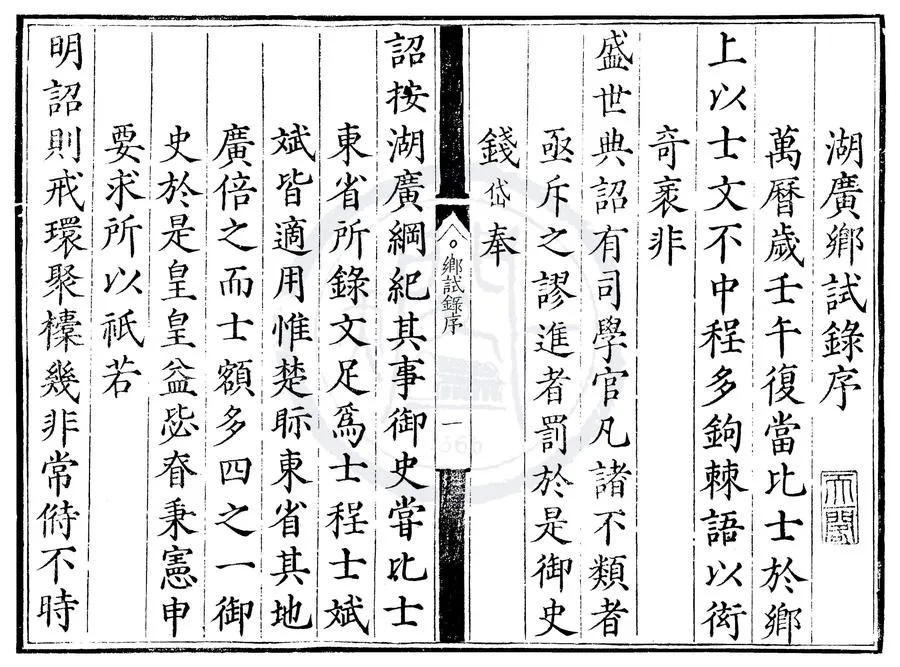 湖廣鄉試錄序
萬曆歲壬午復當比士於鄉
上以士文不中程多鉤棘語以衒
奇袤非
盛世典詔有司學官凡諸不類者
亟斥之謬進者罰於是御史
錢岱奉
鄉試錄序
一
詔按湖廣綱紀其事御史嘗比士
東省所錄文足爲士程士斌
斌皆適用惟楚眎東省其地
廣倍之而士額多四之一御
史於是皇皇益毖眘秉憲申
要求所以祇若
明詔則戒環聚檯幾非常偫不時